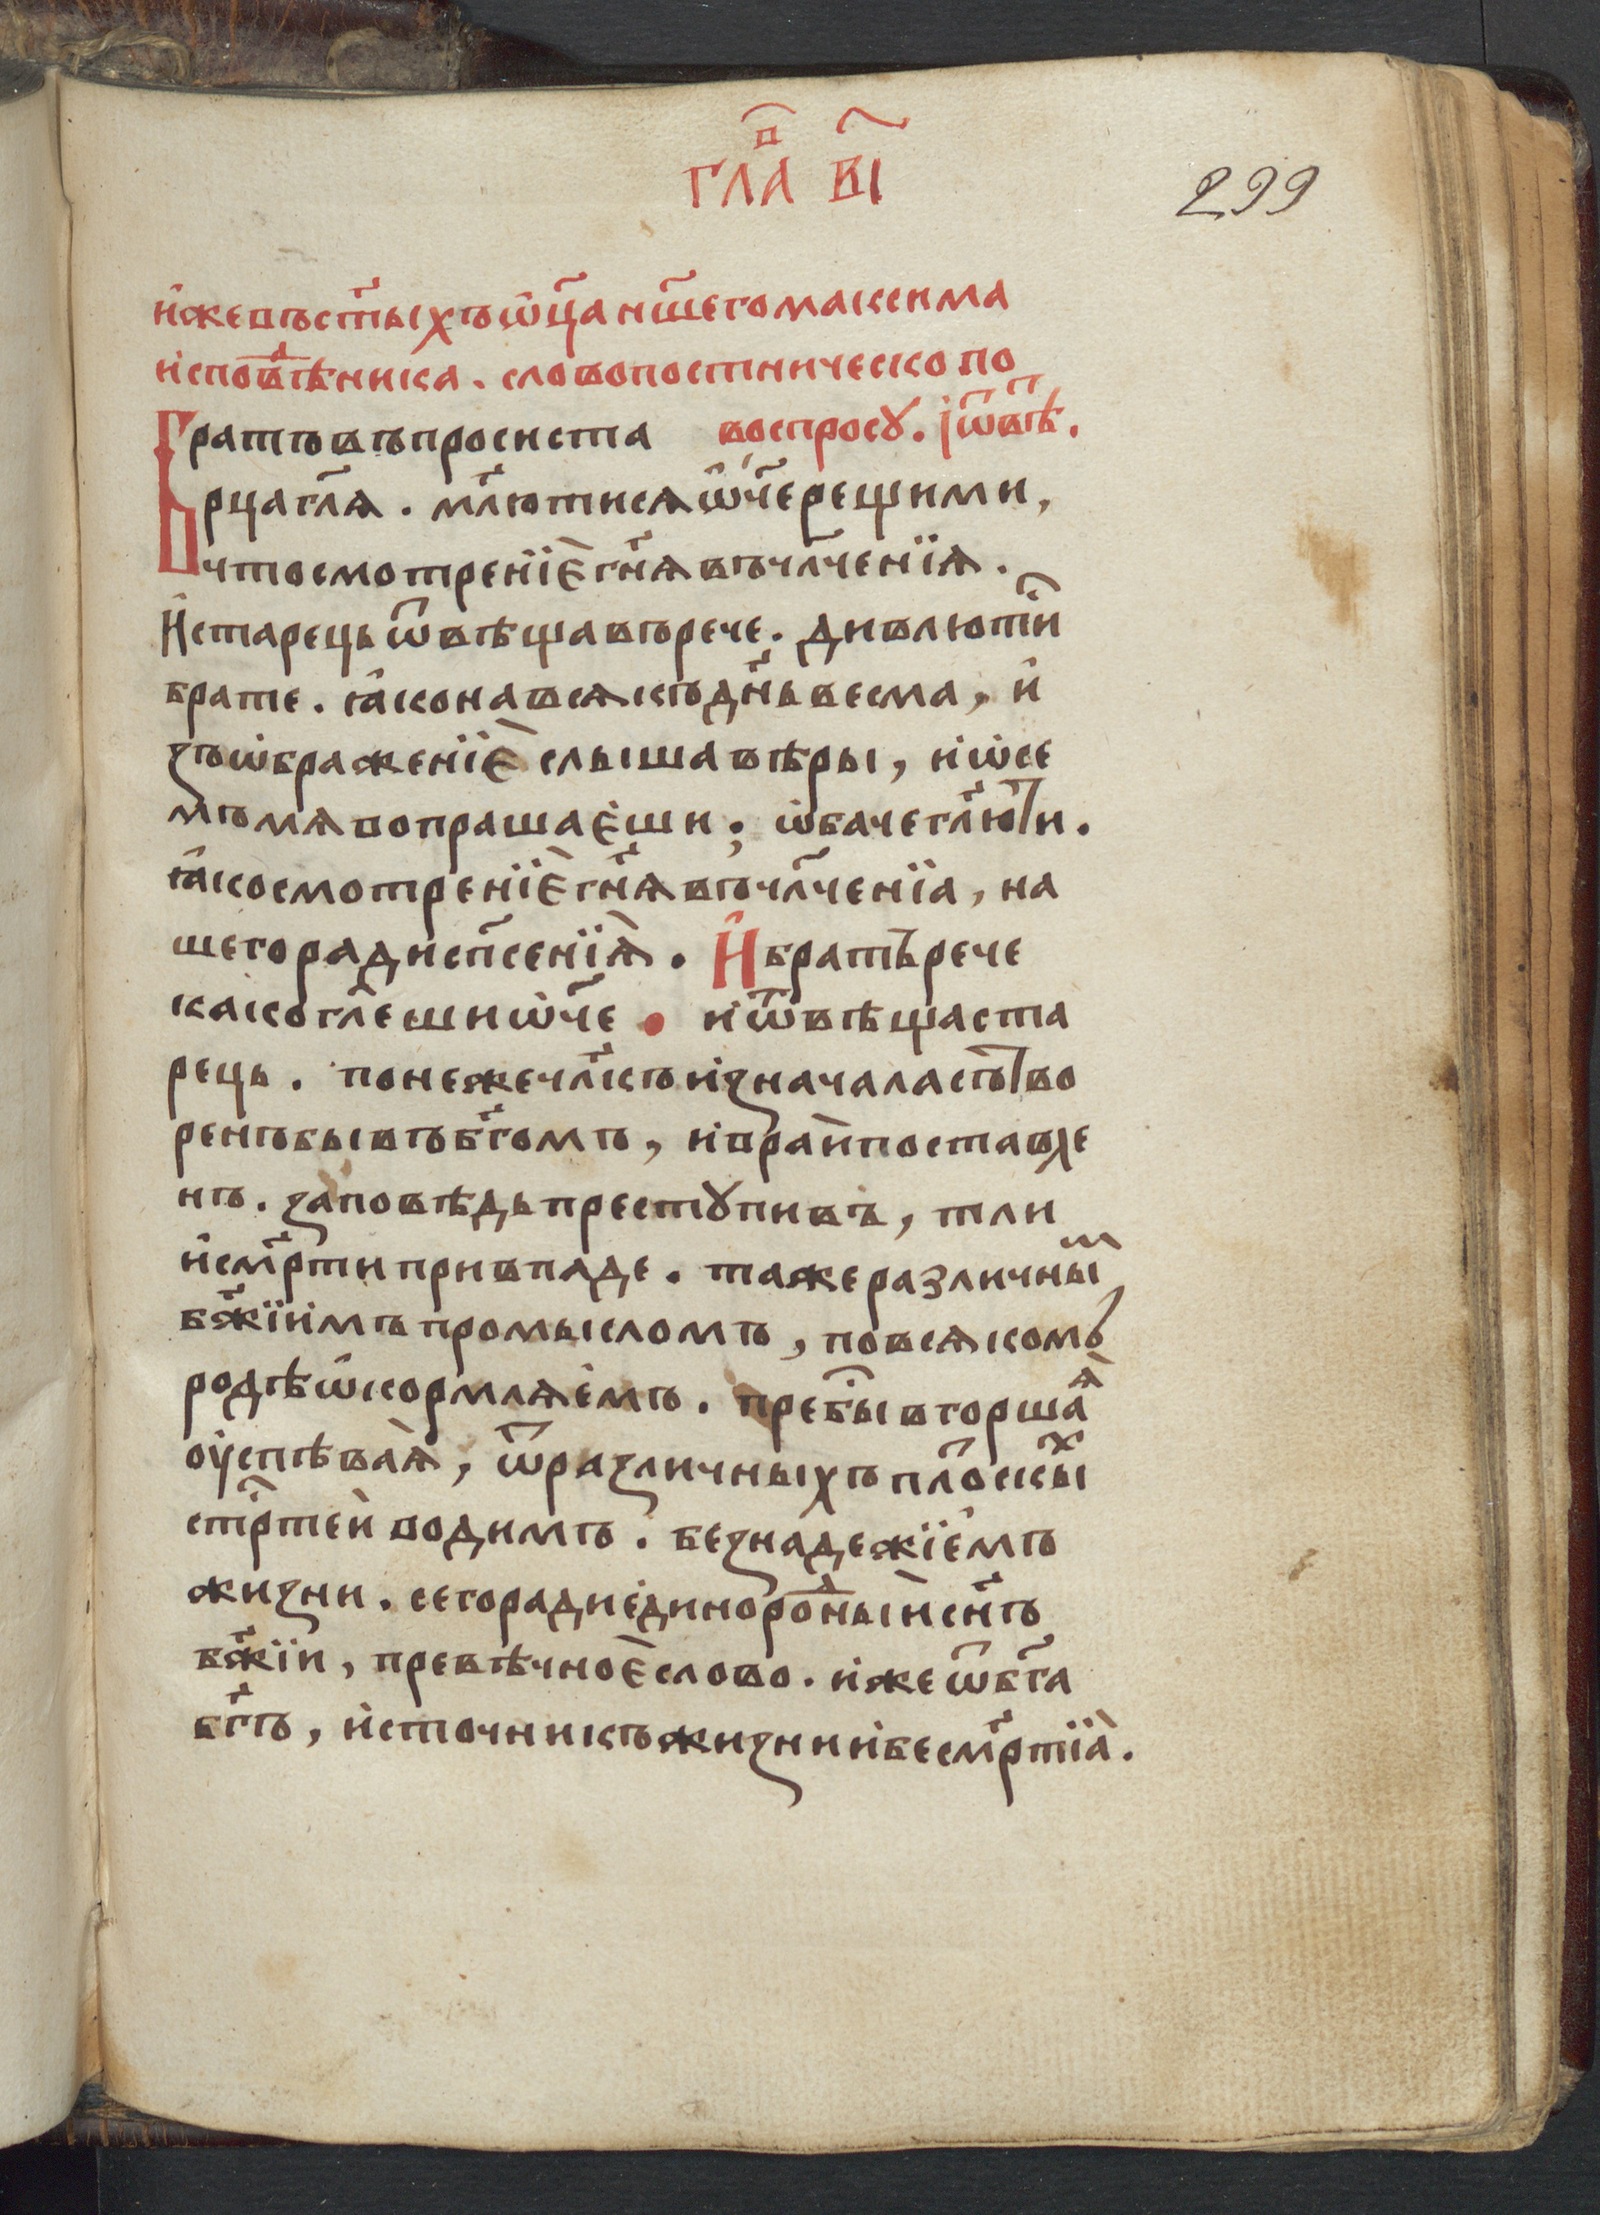 гла в҃і
299
и҆же въ ст҃ыхъ ѿц҃а нш҃его маѯима
и҆сповѣⷣника . слово постническо по
воспросꙋ . і ѿвѣⷮ .
Братъ въпроси ста
рца гл҃ѧ . мл҃ютисѧ ѡ҆ч҃е рещи ми ,
что смотрениїе гн҃ѧ въчл҃ченїѧ .
И҆ старець ѿвѣщавъ рече . дивлютиⷭ
брате . ꙗ҆ко на всѧкъ дн҃ь весма , и҆
зъѡбраженїе слыша вѣры , и҆ ѡ҆ се
мъ мѧ вопрашаеши ; ѡ҆баче гл҃ю ти .
ꙗ҆ко смотренїе гн҃ѧ въчл҃ченїа , на
шего ради сп҃сенїѧ . И҆ братъ рече
како гл҃еши ѡ҆ч҃е . и҆ ѿвѣща ста
рець . понеже чл҃къ и҆значала сътво
ренъ бывъ бг҃омъ , и҆ в раи поставле
нъ . заповѣдь престꙋпивъ , тли
и҆ см҃рти привпаде . таже различныⷨ
бж҃їимъ промысломъ , по всѧкомъ
родѣ ѡ҆кормлѧемъ . пребыв горшаѧ
оуспѣваѧ , ѿ различныхъ пло҃тскыⷯ
стр҃тей водимъ . безнадежїемъ
жизни . сего ради единороⷣный сн҃ъ
бж҃їи , превѣчное слово . и҆же ѿ бг҃а
бг҃ъ , и҆сточникъ жизни и҆ бесм҃ртїа .